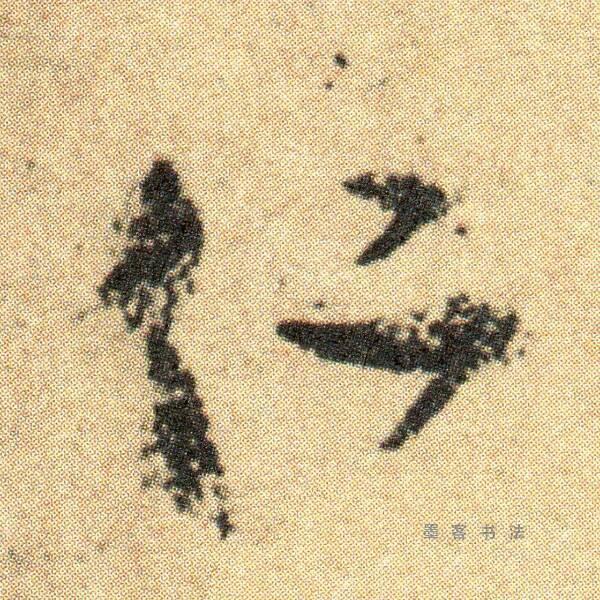 仁
墨客书法